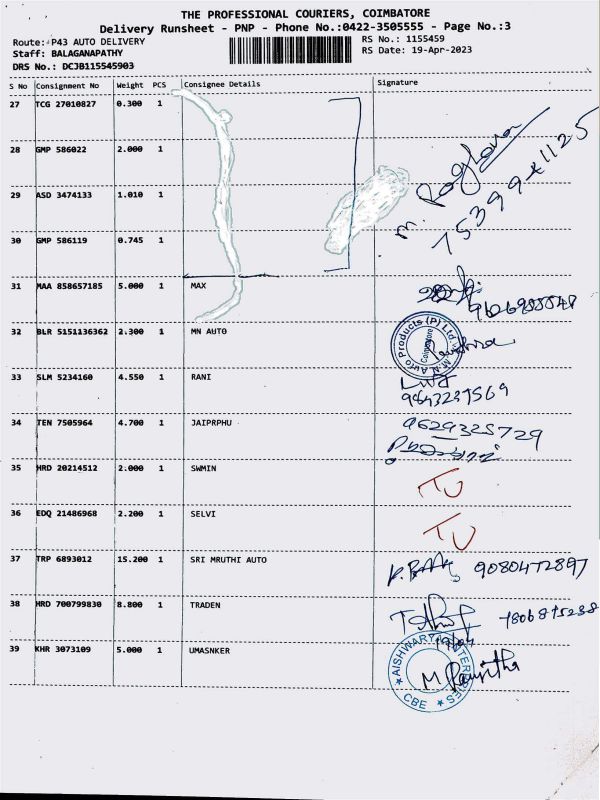 THE PROFESSIONAL COURIERS, COIMBATORE
Delivery Runsheet - PNP - Phone No.:0422-3505555 - Page No.:3
Route: P43 AUTO DELIVERY
RS No.: 1155459
Staff: BALAGANAPATHY
RS Date: 19-Apr-2023
DRS No.: DCJB115545903
S No Consignment No Weight PCS Consignee Details Signature
27 TCG 27010827 0.300 1
28 GMP 586022 2.000 1
29 ASD 3474133 1.010 1
M. Raghava
30 GMP 586119 0.745 1
31 MAA 858657185 5.000 1 MAX
32 BLR 5151136362 2.300 1 MN AUTO
M.N. Auto Products (P) Ltd. Coimbatore
33 SLM 5234160 4.550 1 RANI
34 TEN 7505964 4.700 1 JAIPRPHU
9629325729
35 HRD 20214512 2.000 1 SWMIN
TU
36 EDQ 21486968 2.200 1 SELVI
TU
37 TRP 6893012 15.200 1 SRI MRUTHI AUTO
9080472897
38 HRD 700799830 8.800 1 TRADEN
39 KHR 3073109 5.000 1 UMASNKER
AISHWARYA ENTERPRISES
CBE